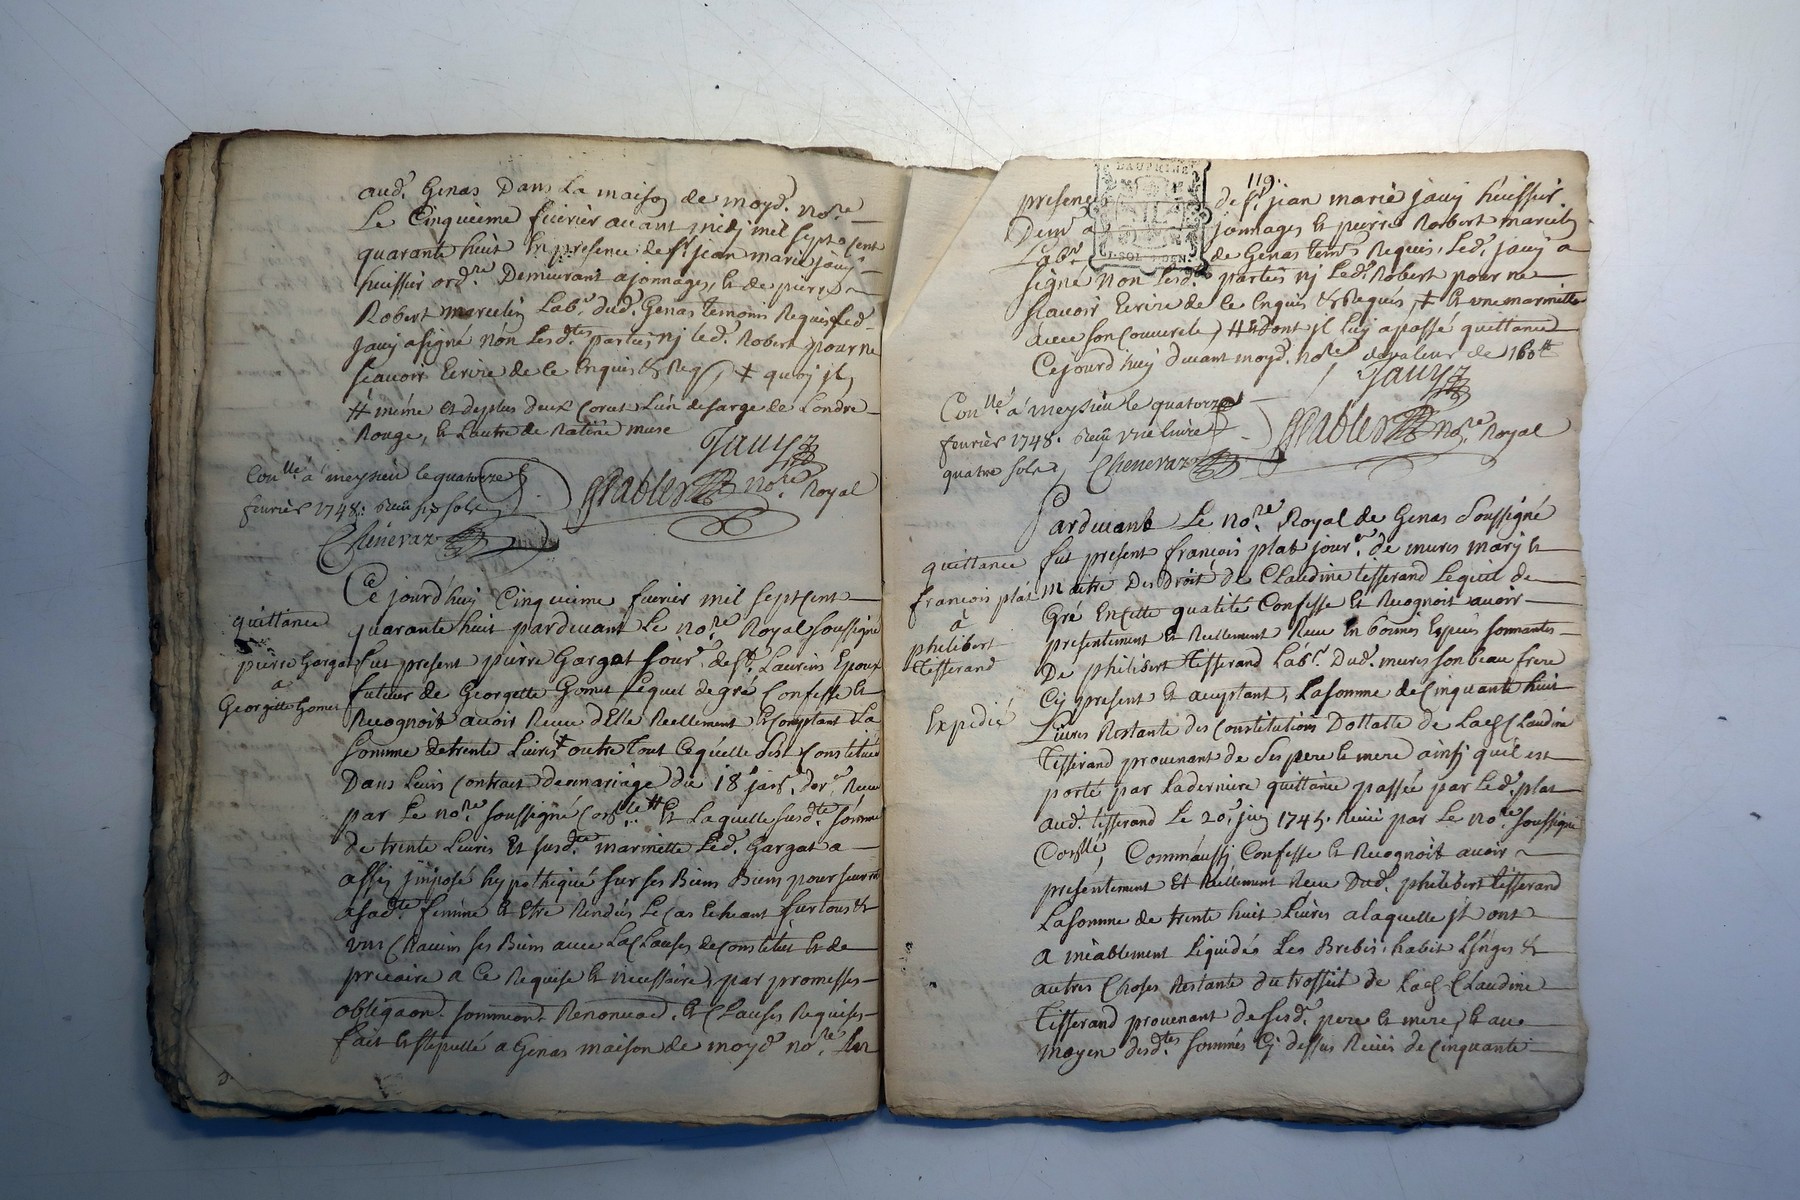 aud.t Genas Dans La maison de moyd.t no.re
Le Cinquieme fevrier avant midy mil sept cent
quarante huit En presence de s.r jean marie jauy
huissier ord.re Demeurant a jonnages, et de pierre
Robert marcelin Lab.r dud.t Genas temoins Requis Led.
jauy a signé non Lesd.tes parties nj led.t Robert pour ne
scavoir Ecrire de ce Enquis & Req, ‡ quoy jl
# même et de plus deux Corset L'un de sarge de Londre
Rouge, et L'autre de Ratine muse
Jauy
Con.llé a meysieu le quatorze
fevrier 1748. Reçu six sols
Chenevaz
no.re Royal
Ce jourd'huy Cinquieme fevrier mil sept cent
quarante huit pardevant Le no.re Royal soussigné
fut present pierre Gargat Jour.r de s.t Laurens Epoux
futeur de Georgette Gomet Lequel de gré Confesse et
Recognoit avoir Receu d'Elle Reellement et Comptant La
somme de trente Livres ‡ outre tout ce qu'elle s'est Constitué
Dans Leurs Contract de mariage du 18 janv.r der.r Receu
par Le no.re soussigné Con.llé # Et Laquelle susd.te somme
de trente Livres Et susd.te marmitte Led.t Gargat a
assis jmposé hypothequé sur ses Biens Biens pour seureté
a sad.te femme et Etre Rendus Le Cas Echeant sur tous &
uns Chacuns ses Biens avec La Clauses de Constitut et de
precaire a Ce Requise et necessaire, par promesses
obligaon. Renonciaon. et Clauses Requises
fait et stipullé a Genas maison de moyd.t no.re En
quittance
pierre Gargat
a
Georgette Gomet
119.
DAUPHINÉ
presence de s.r jean marie jauy huissier
Dem.t a jonnages et pierre Robert marcelin
Lab.r de Genas tem.s Requis, Led.t jauy a
signé non Lesd.tes parties nj Led.t Robert pour ne
scavoir Ecrire de ce Enquis & Requis, ‡ et une marmitte
avec son Couvercle, # dont jl luy a passé quittance
Cejourd'huy devant moyd.t no.re de valeur de 160 #
Jauy
Con.llé a meysieu le quatorze
fevrier 1748. Reçu une livre
quatre sols, Chenevaz
no.re Royal
Pardevant Le no.re Royal de Genas soussigné
fut present françois plat jour.er de mures mary et
maitre Des Droits de Claudine tisserand Lequel de
Gré En cette qualité Confesse Et Recognoit avoir
presentement et Reellement Receu En bonnes Especes sonnantes
De philibert tisserand Lab.r Dud.t mures son beau frere
Cy present et acceptant, La somme de Cinquante huit
Livres Restante des Constitutions Dottalle de Lad. Claudine
tisserand provenant de ses pere et mere ainsi qu'il est
porté par La derniere quittance passée par Led.t plat
aud.t tisserand Le 20.e juin 1745. Receu par Le no.re soussigné
Con.llé, Comm'aussy Confesse et Recognoit avoir
presentement Et Reellement Receu Dud.t philibert tisserand
La somme de trente huit Livres a laquelle jls ont
a miablement Liquidés Les Brebis, habit Linges &
autres Choses Restante du trossel de Lad. Claudine
tisserand provenant de sesd.t pere et mere, et au
moyen desd.tes sommes Cy dessus Receues de Cinquante
quittance
françois plat
a
philibert
tisserand
Expedié